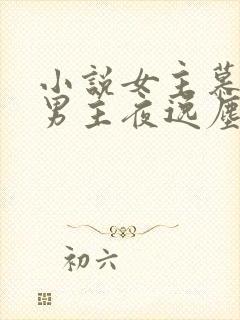 小說女主慕
男主夜逸塵
初六